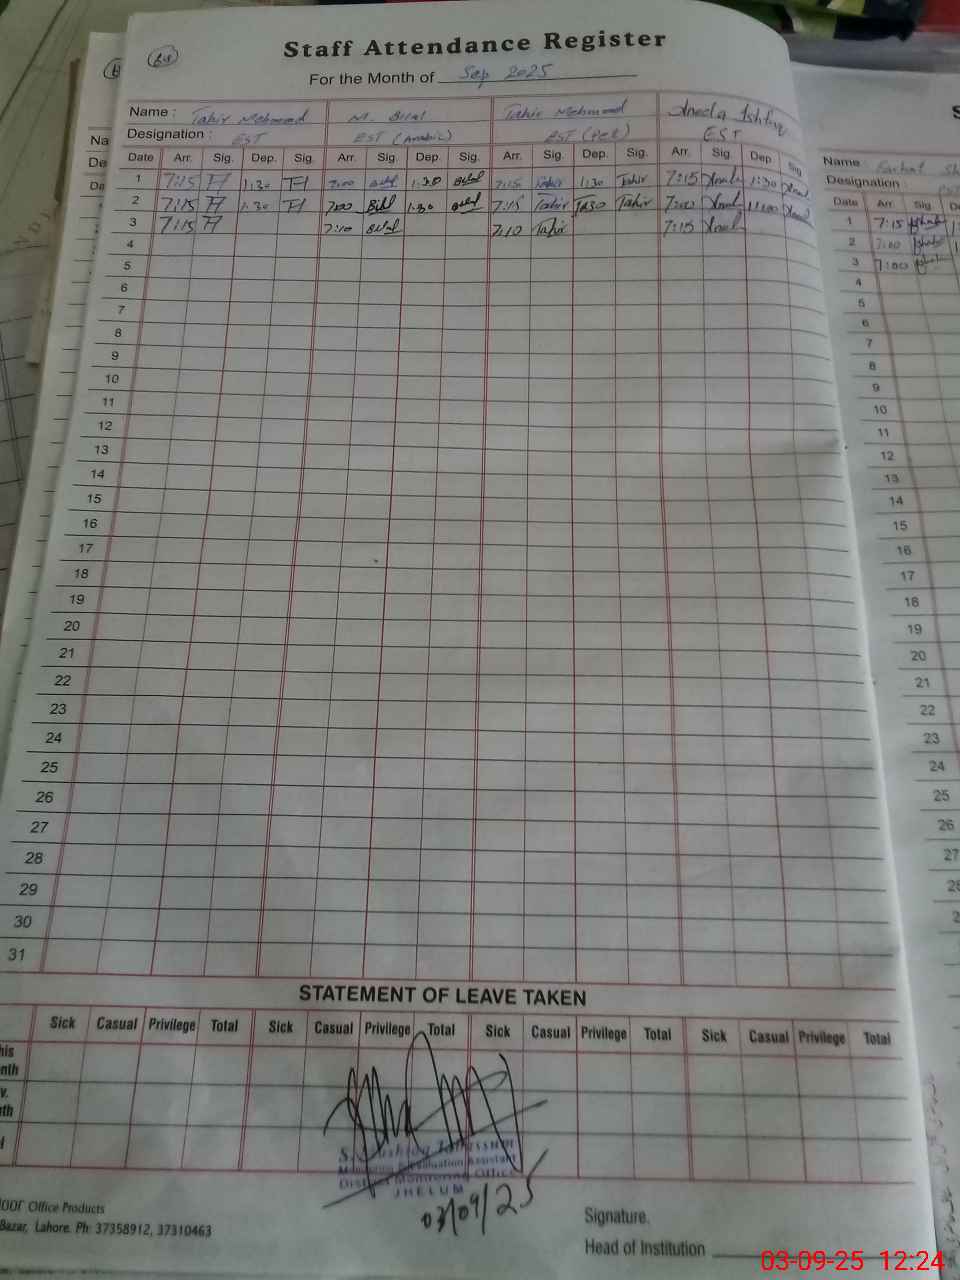 Staff Attendance Register
For the Month of Sep 2025
Name : Tahir Mehmood M. Bilal Tahir Mehmood Aneela Ishtiaq
Designation : EST EST (Arabic) EST
Date Arr. Sig. Dep. Sig. Arr. Sig. Dep. Sig. Arr. Sig. Dep. Sig. Arr. Sig. Dep Sig
1 7:15 1:30 7:00 Bilal 1:30 Bilal 7:15 Tahir 1:30 Tahir 7:15 1:30
2 7:15 1:30 7:00 Bilal 1:30 Bilal 7:15 Tahir 1:30 Tahir 7:00 11:00
3 7:15 7:10 Bilal 7:10 Tahir 7:15
4
5
6
7
8
9
10
11
12
13
14
15
16
17
18
19
20
21
22
23
24
25
26
27
28
29
30
31
STATEMENT OF LEAVE TAKEN
Sick Casual Privilege Total Sick Casual Privilege Total Sick Casual Privilege Total Sick Casual Privilege Total
his
nth
v.
uth
Monitoring Evaluation Assistant
District Monitoring Office
JHELUM
03/09/25
Office Products
Bazar, Lahore. Ph: 37358912, 37310463
Signature.
Head of Institution
Na
De
Da
S
Name
Designation
Date Arr. Sig. D
1 7:15
2 7:00
3 7:00
4
5
6
7
8
9
10
11
12
13
14
15
16
17
18
19
20
21
22
23
24
25
26
27
28
2
03-09-25 12:24